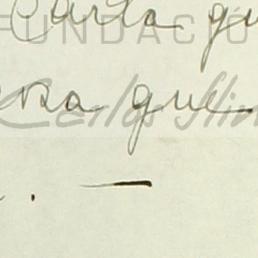 Carta qu
FUNDACIÓ
que
Carlos Slim
. —